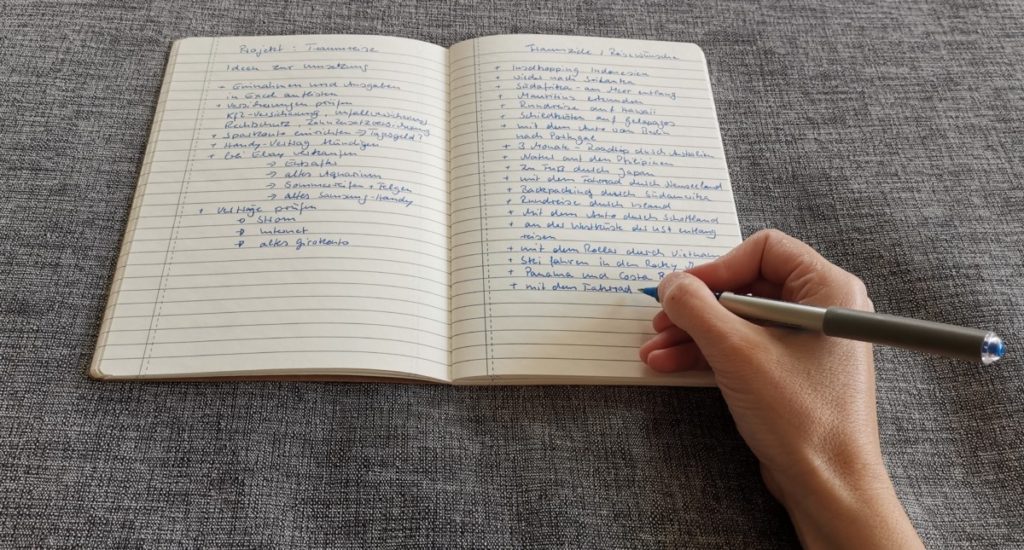 Projekt: Traumreise
Ideen zur Umsetzung
+ Einnahmen und Ausgaben
in Excel auflisten
+ Versicherungen prüfen
Kfz-Versicherung, Unfallversicherung
Rechtsschutz, Zahnersatzversicherung
+ Sparkonto einrichten → Tagesgeld?
+ Handy-Vertrag kündigen
+ bei Ebay verkaufen
→ Entsafter
→ altes Aquarium
→ Sommerreifen + Felgen
→ altes Samsung-Handy
+ Verträge prüfen
→ Strom
→ Internet
→ altes Girokonto
Traumziele / Reisewünsche
+ Inselhopping Indonesien
+ wieder nach Sri Lanka
+ Südafrika - am Meer entlang
+ Mauritius erkunden
+ Rundreise auf Hawaii
+ Schildkröten auf Galapagos
+ mit dem Auto von Berlin
nach Portugal
+ 3 Monate - Roadtrip durch Australien
+ Natur auf den Philipinen
+ zu Fuß durch Japan
+ mit dem Fahrrad durch Neuseeland
+ Backpacking durch Südamerika
+ Rundreise durch Island
+ Mit dem Auto durch Schottland
+ an der Westküste der USA entlang
reisen
+ mit dem Roller durch Vietnam
+ Ski fahren in den Rocky
+ Panama und Costa
+ mit dem Fahrrad